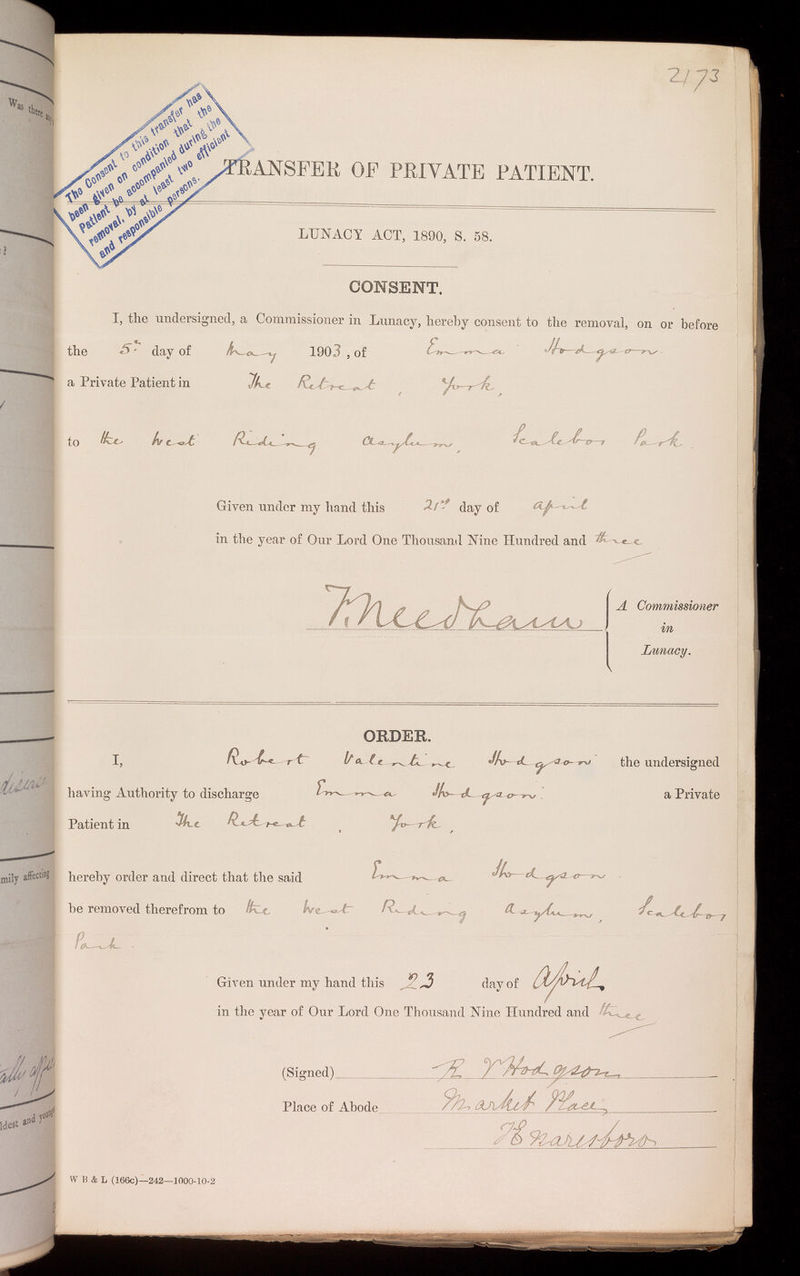 2173
Was there any
The Consent to this transfer has
been given on condition that the
Patient be accompanied during the
removal, by at least two efficient
and responsible persons.
TRANSFER OF PRIVATE PATIENT.
LUNACY ACT, 1890, S. 58.
CONSENT.
I, the undersigned, a Commissioner in Lunacy, hereby consent to the removal, on or before
the 5th day of May 1903, of Emma Hodgson
a Private Patient in The Retreat, York,
to the West Riding Asylum, Scalebor Park.
Given under my hand this 21st day of April
in the year of Our Lord One Thousand Nine Hundred and three
F. Needham
A Commissioner
in
Lunacy.
ORDER.
I, Robert Valentine Hodgson the undersigned
having Authority to discharge Emma Hodgson. a Private
Patient in The Retreat, York,
hereby order and direct that the said Emma Hodgson
be removed therefrom to the West Riding Asylum, Scalebor
Park.
Given under my hand this 23 day of April,
in the year of Our Lord One Thousand Nine Hundred and three
(Signed) R V Hodgson
Place of Abode Market Place,
Knaresboro
W B & L (166c)—242—1000-10-2
disease
mily affecting
ldest and young